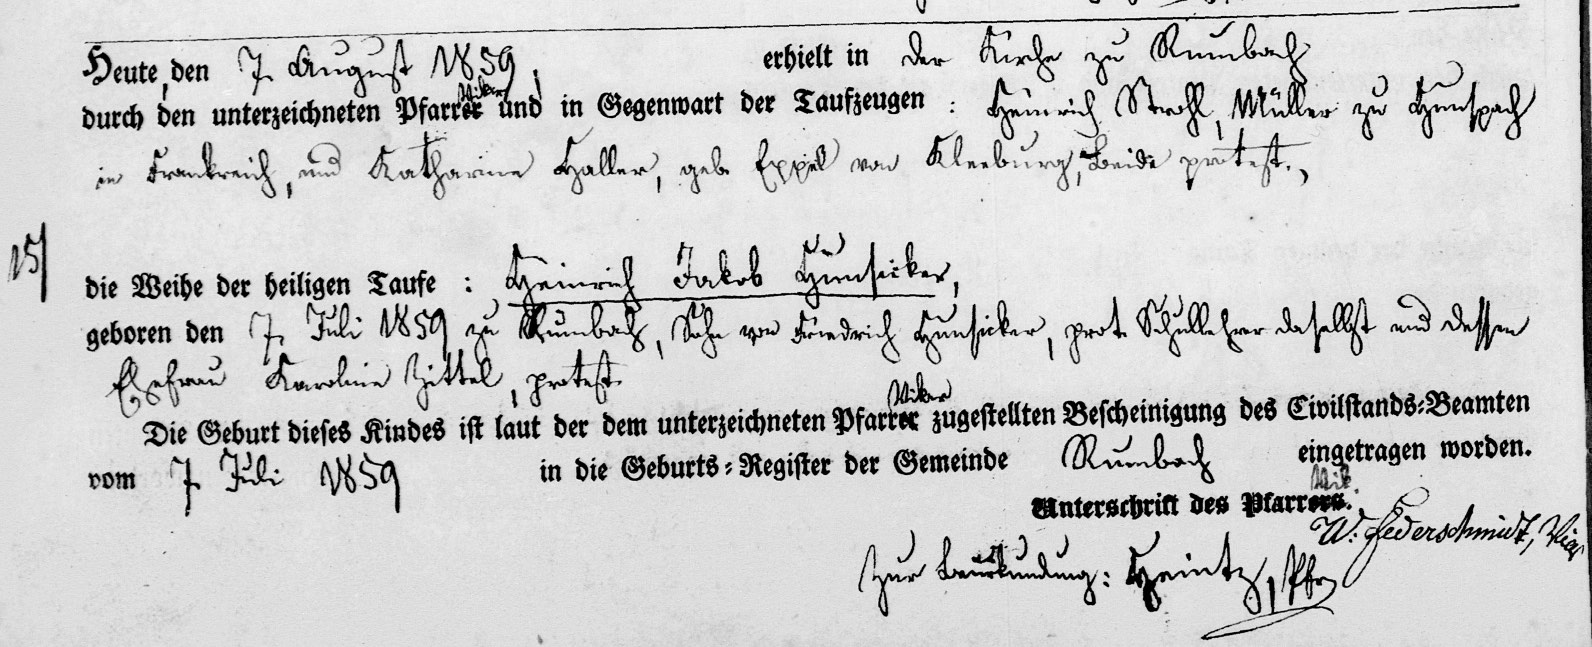 Heute, den 7. August 1859, erhielt in der Kirche zu Rumbach
Vikar
durch den unterzeichneten Pfarrer und in Gegenwart der Taufzeugen : Heinrich Strohl, Müller zu Hunspach
in Frankreich, und Katharine Haller, geb. Eppel von Kleeburg, beide protest.,
15
die Weihe der heiligen Taufe : Heinrich Jakob Hunsicker,
geboren den 7. Juli 1859 zu Rumbach, Sohn von Friedrich Hunsicker, prot. Schullehrer daselbst und dessen
Ehefrau Karoline Zittel, protest.
Vikar
Die Geburt dieses Kindes ist laut der dem unterzeichneten Pfarrer zugestellten Bescheinigung des Civilstands-Beamten
vom 7. Juli 1859 in die Geburts-Register der Gemeinde Rumbach eingetragen worden.
Vik.
Unterschrift des Pfarrers.
W. Federschmidt, Vicar
Zur Beurkundung: Heintz, Pfr.